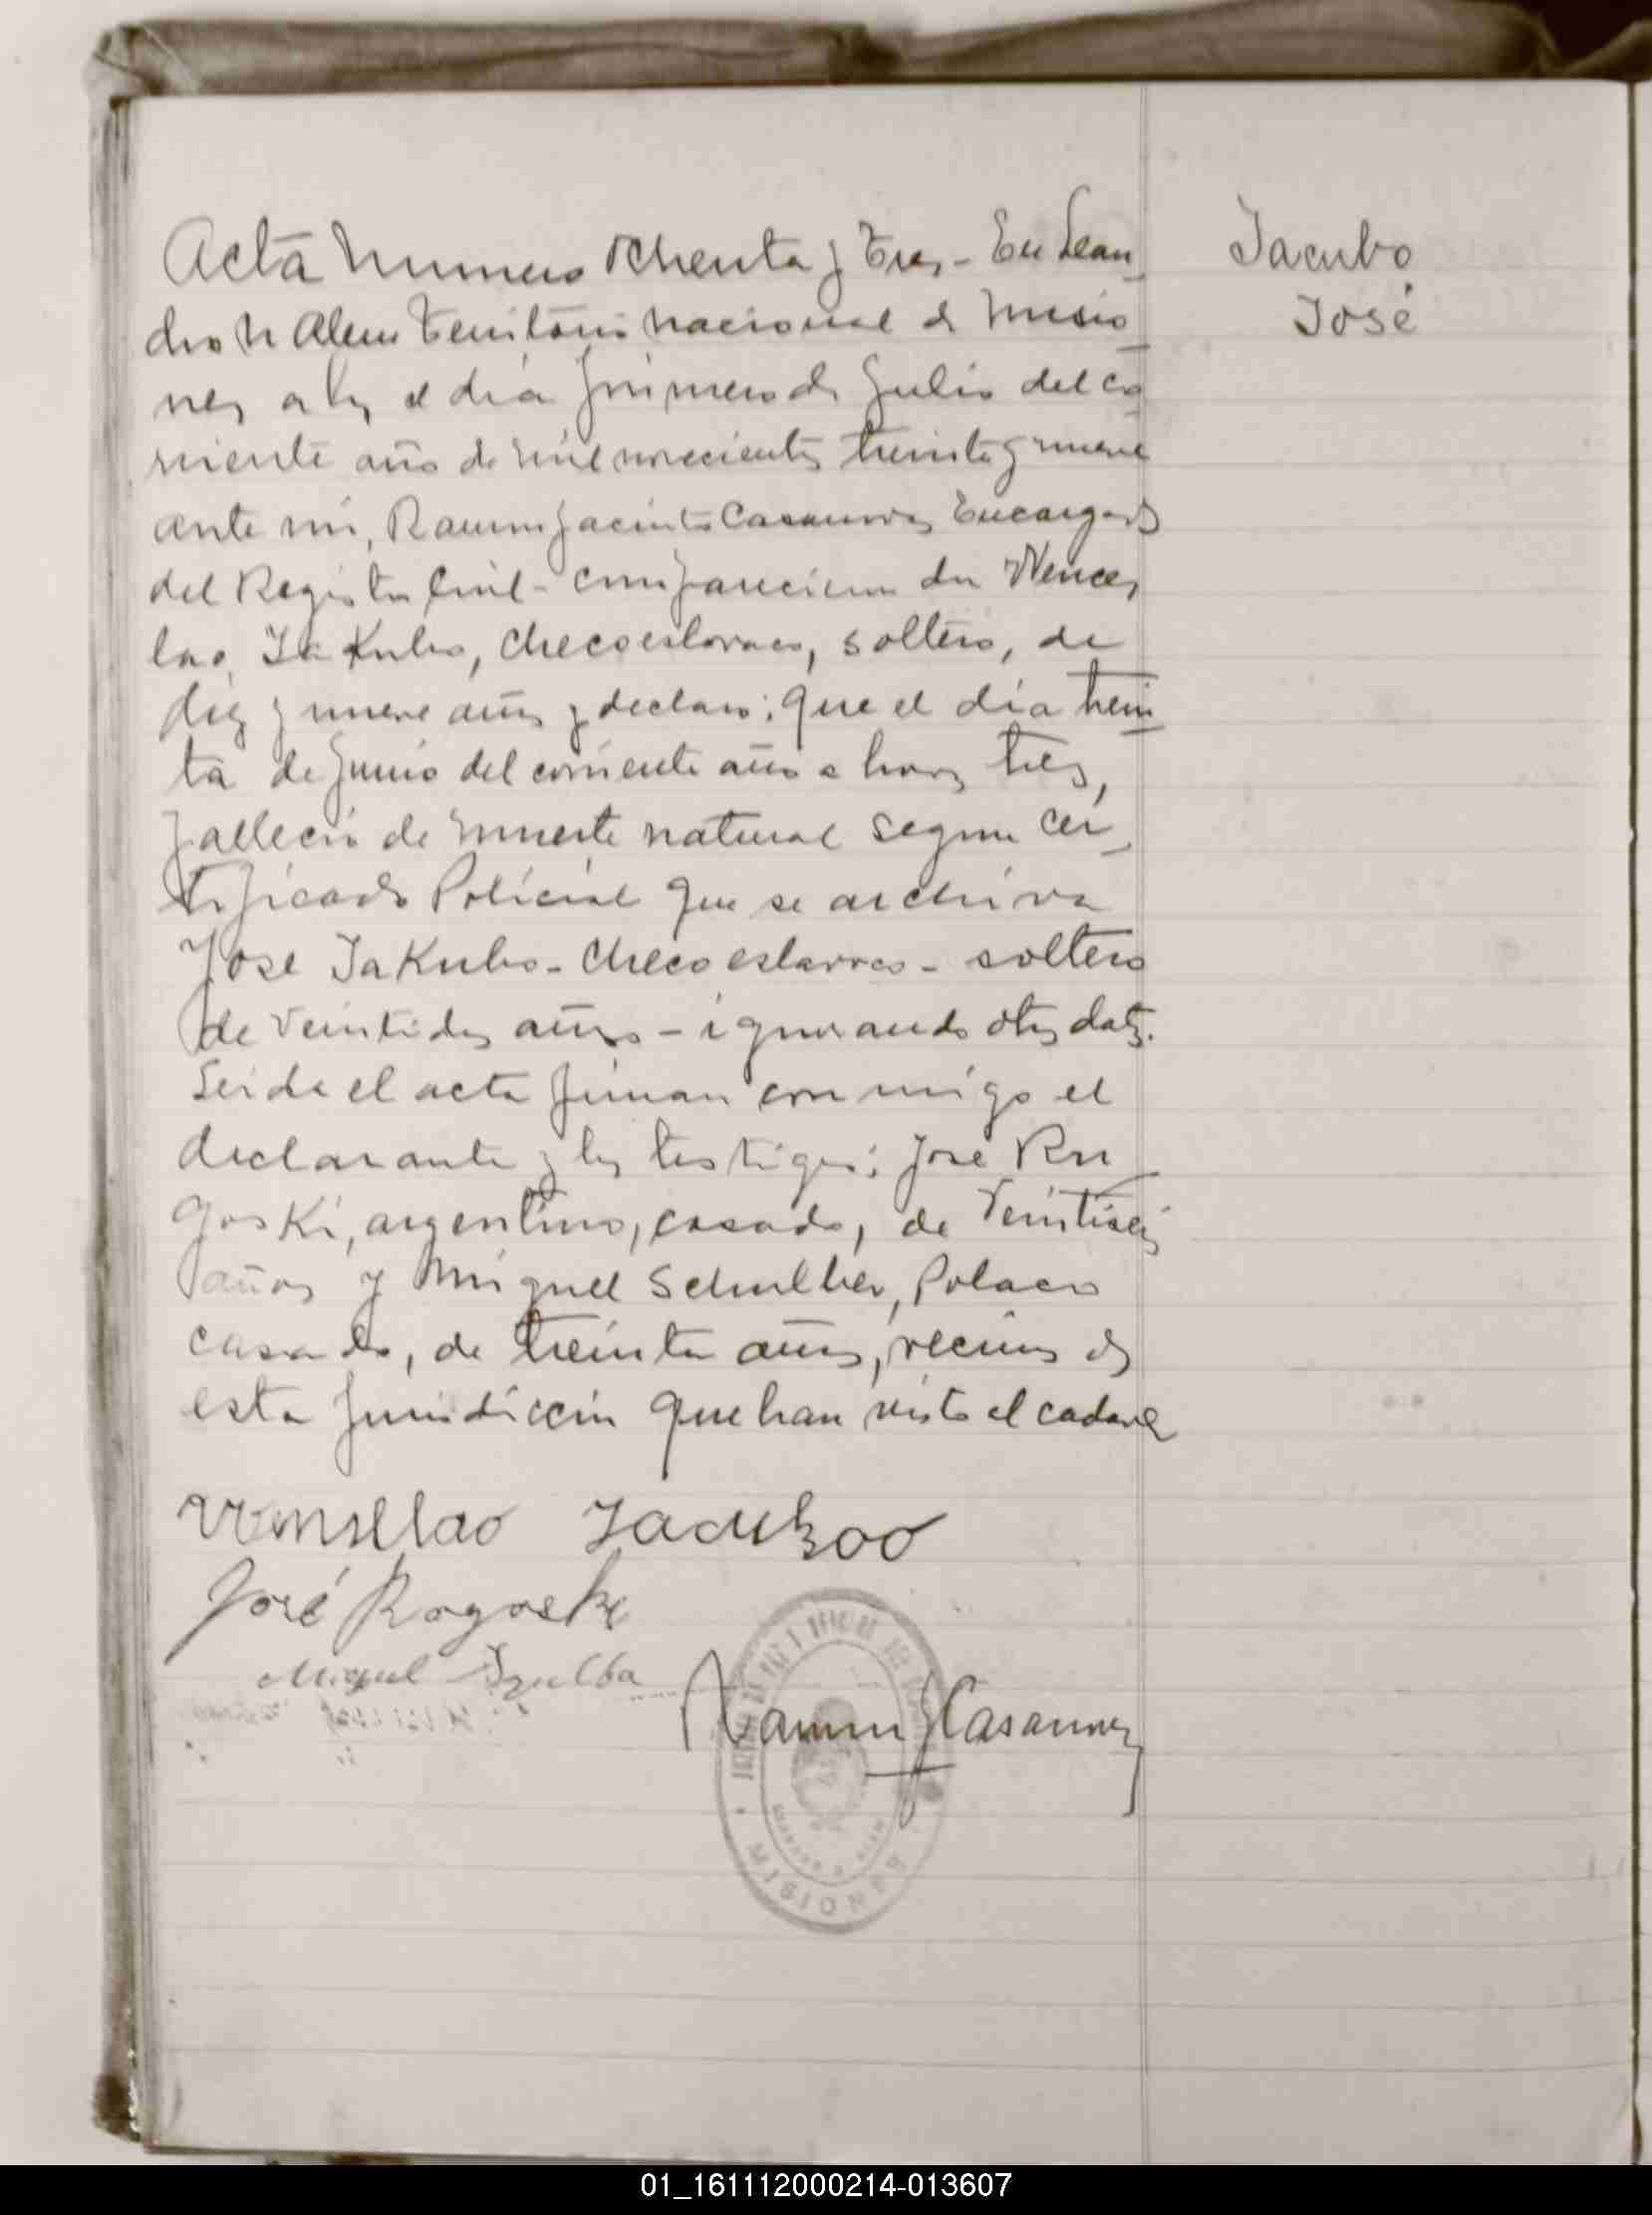 Acta Numero Ochenta y Tres - En Lean
Jacubo
José
dro N Alem Territorio Nacional de Misio
nes a los el dia primero de Julio del co
rriente año de mil novecientos treinta y nueve
ante mi, Ramon Jacinto Casanovas Encargado
del Registro Civil - comparecieron don Wences
lao Jakubo, Checoeslovaco, soltero, de
diez y nueve años y declaro: que el dia trein
ta de Junio del corriente año a horas tres,
fallecio de muerte natural segun cer
tificado Policial que se archiva
Jose Jakubo - Checoeslovaco - soltero
de veintidos años - ignorando otros datos.
Leida el acta firman conmigo el
declarante y los testigos: Jose Ru
goski, argentino, casado, de veintiseis
años y Miguel Schulber, Polaco
casado, de treinta años, vecinos de
esta jurisdiccion que han visto el cadaver
Venseslao Jacuboo
José Rogoski
Miguel Szulba
Ramon J Casanovas
MISIONES
01_161112000214-013607